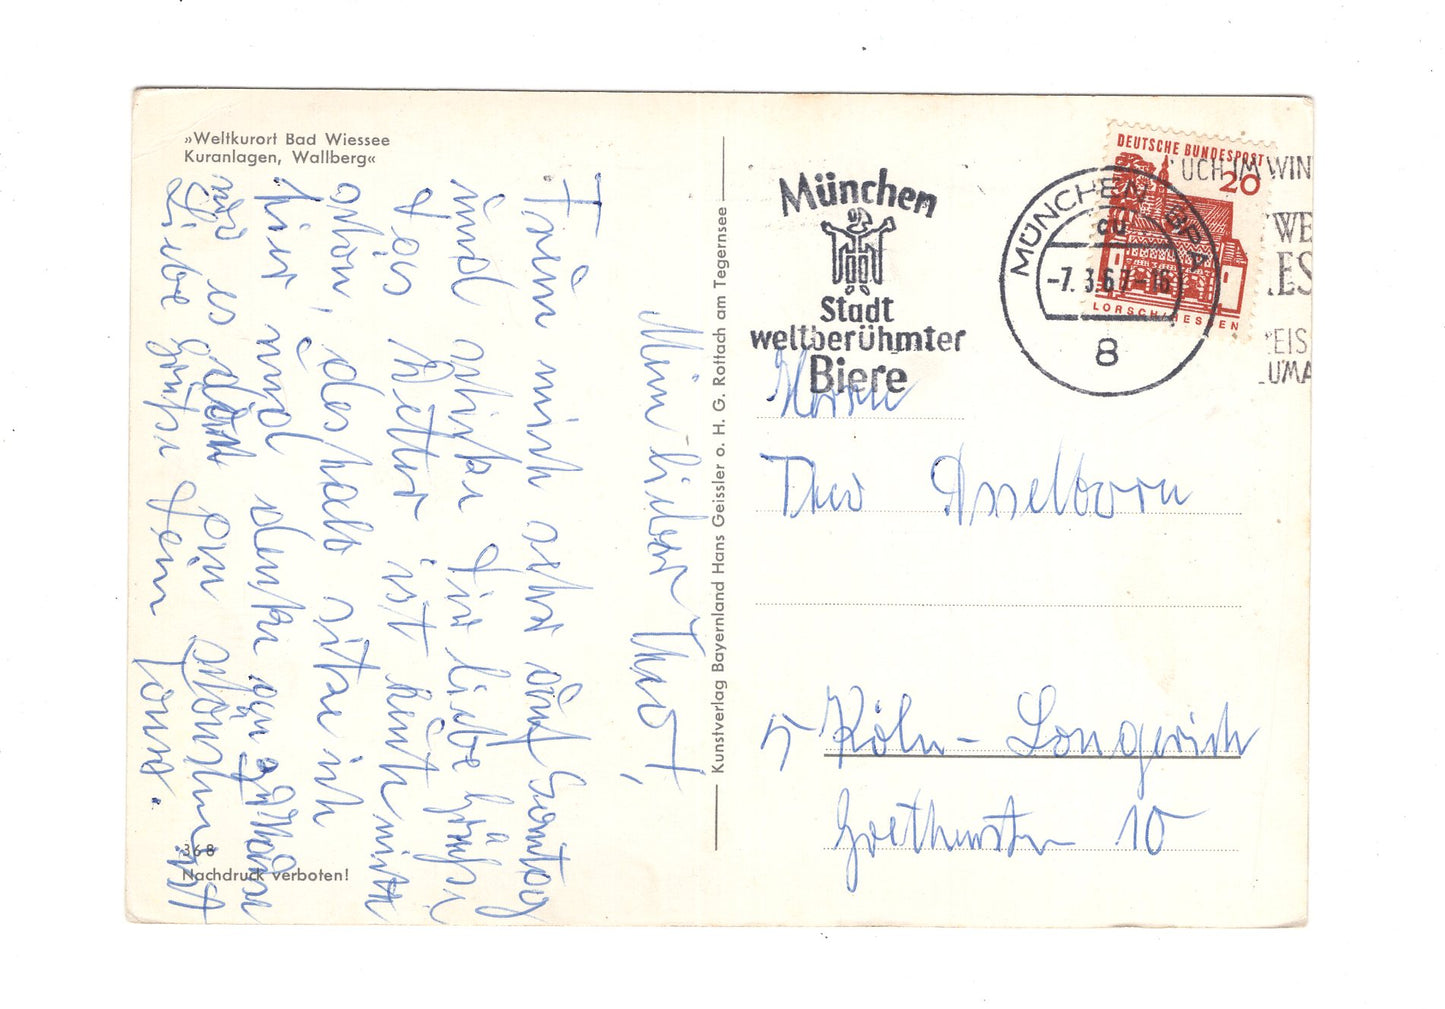 »Weltkurort Bad Wiessee
Kuranlagen, Wallberg«
Mein lieber Theo,
Freue mich sehr auf Sonntag
und schicke Dir liebe Grüße
das Wetter ist heute nicht
schön, deshalb sitze ich
hier und denke an
wo es dort ein schön ist
Liebe Grüße Dein
368
Nachdruck verboten!
Kunstverlag Bayernland Hans Geissler o. H. G. Rottach am Tegernsee
München
Stadt
weltberühmter
Biere
MÜNCHEN BPA
cu
-7.3.67-16
8
DEUTSCHE BUNDESPOST
20
LORSCH/HESSEN
UCH IM WIN
WE
ES
EIS
UMA
Herrn
Theo Asselborn
5 Köln-Longerich
Goethestr 10